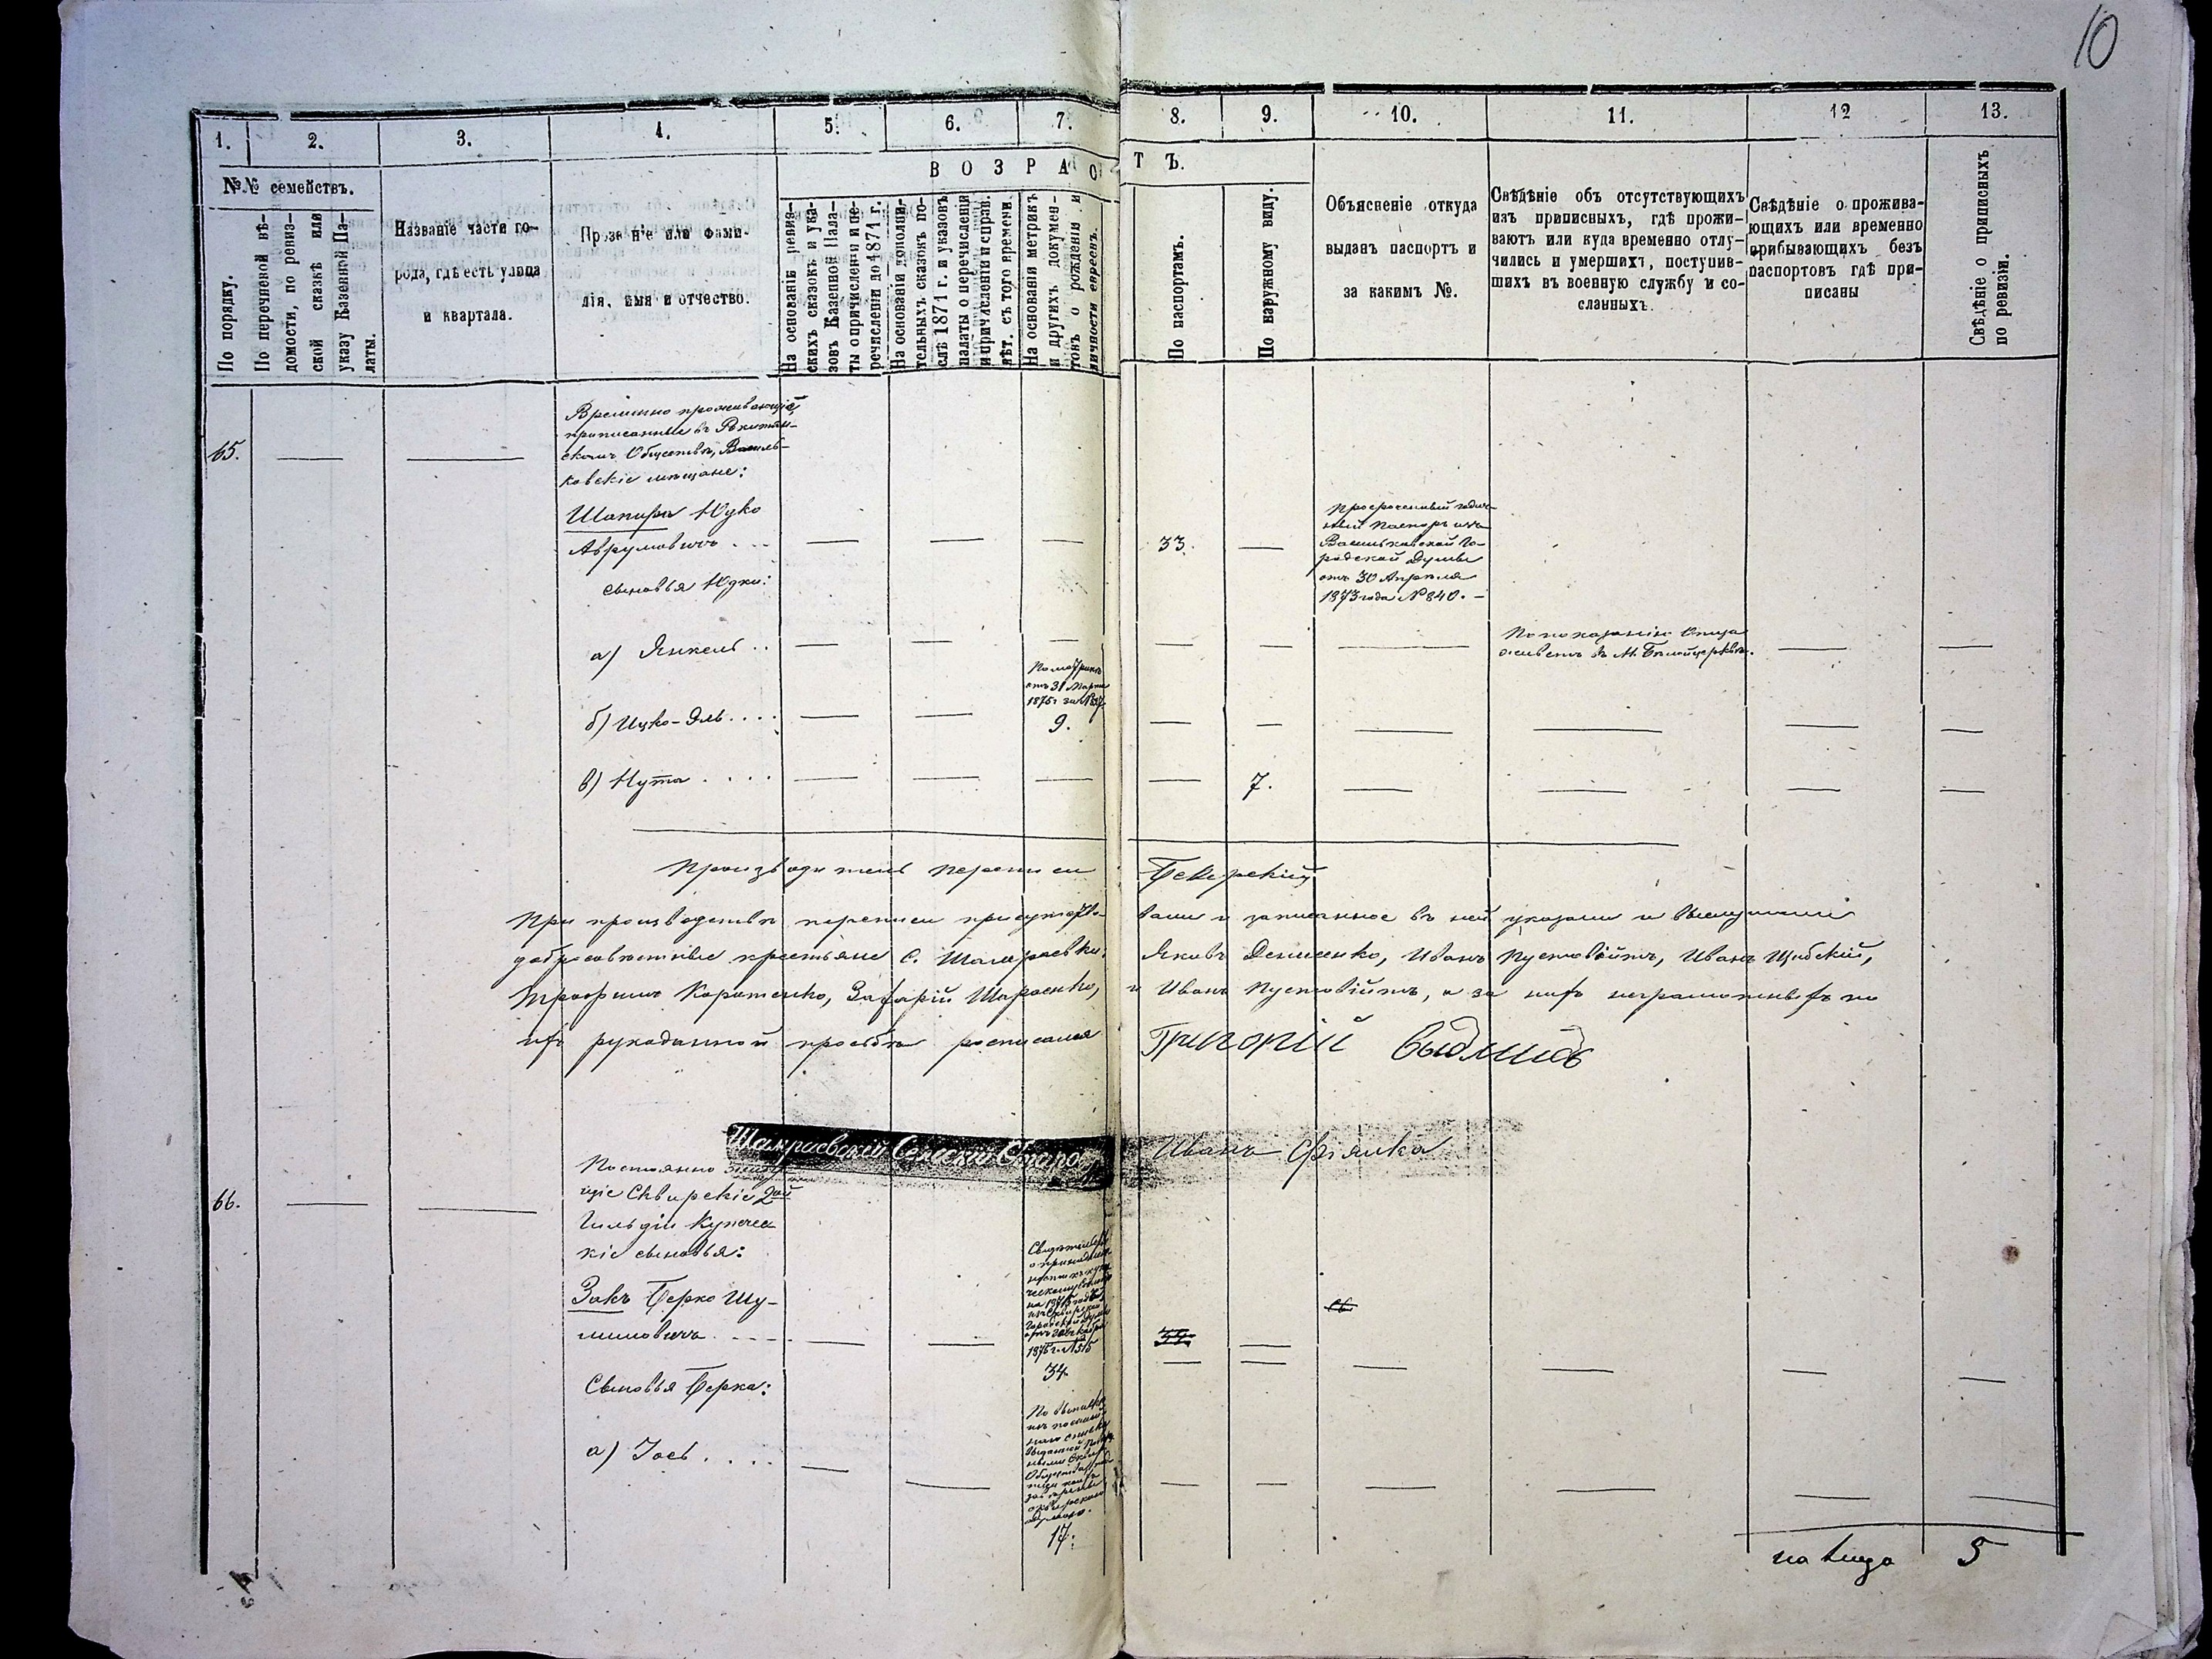 10
1.
2.
3.
4.
5.
6.
7.
8.
9.
10.
11.
12
13.
№№ семействъ.
По порядку.
По перечневой вѣ-
домости, по ревиз-
ской сказкѣ или
указу Казенной Па-
латы.
Названіе части го-
рода, гдѣ есть улица
и квартала.
Прозваніе или фами-
лія, имя и отчество.
ВОЗРАС
ТЪ.
На основаніи ревиз-
скихъ сказокъ и ука-
зовъ Казенной Пала-
ты о причисленіи и пе-
речисленіи до 1871 г.
На основаніи дополни-
тельныхъ сказокъ по-
слѣ 1871 г. и указовъ
палаты о перечисленіи
и причисленіи и справ.
лѣт. съ того времени.
На основаніи метрикъ
и другихъ докумен-
товъ о рожденіи и
личности евреевъ.
По паспортамъ.
По наружному виду.
Объясненіе откуда
выданъ паспортъ и
за какимъ №.
Свѣдѣніе объ отсутствующихъ
изъ приписныхъ, гдѣ прожи-
ваютъ или куда временно отлу-
чились и умершихъ, поступив-
шихъ въ военную службу и со-
сланныхъ.
Свѣдѣніе о прожива-
ющихъ или временно
прибывающихъ безъ
паспортовъ гдѣ при-
писаны
Свѣдѣніе о приписныхъ
по ревизіи.
65.
Временно проживающіе,
приписанные въ Рокитян-
скомъ Обществѣ, Василь-
ковскіе мѣщане:
Шапиро Юдко
Аврумовичъ
33.
Просроченный годич-
ный паспортъ изъ
Васильковской Го-
родской Думы
отъ 30 Апрѣля
1873 года № 840.
сыновья Юдки:
а) Янкель
По показанію Отца
живетъ въ М. Бѣлойцеркви.
По метрикѣ
отъ 31 Марта
1875 г. за №
б) Ицко-Эль
9.
в) Нута
7.
Производитель переписи
При производствѣ переписи присутство-
вали и записанное въ ней указали и выслушали
добросовѣстные крестьяне с. Шамраевки:
Яковъ Денисенко, Иванъ Пустовійтъ, Иванъ
Трофимъ Коротенко, Захарій
и Иванъ Пустовійтъ, а за нихъ неграмотныхъ по
ихъ рукоданной просьбѣ росписался
Григорій
Шамраевскій Сельскій Старо
Иванъ Фіялка
66.
Постоянно
щіе Сквирскіе 2ой
Гильдіи Купечес
кіе сыновья:
Закъ Берко Шу-
лимовичъ
на 1875 годъ
1875 г. № 315
34
Сыновья Берка:
а) Іось
17.
на лицо 5